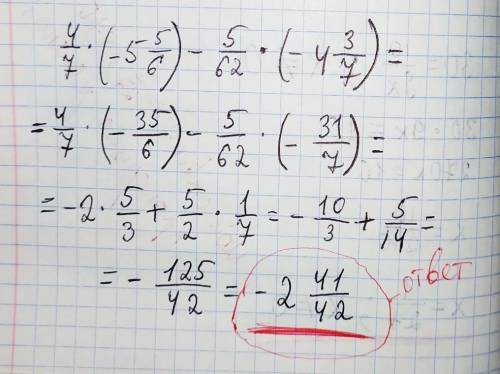 4/7 · (-5 5/6) - 5/62 · (-4 3/7) =
= 4/7 · (-35/6) - 5/62 · (-31/7) =
= -2 · 5/3 + 5/2 · 1/7 = -10/3 + 5/14 =
= -125/42 = -2 41/42 ответ